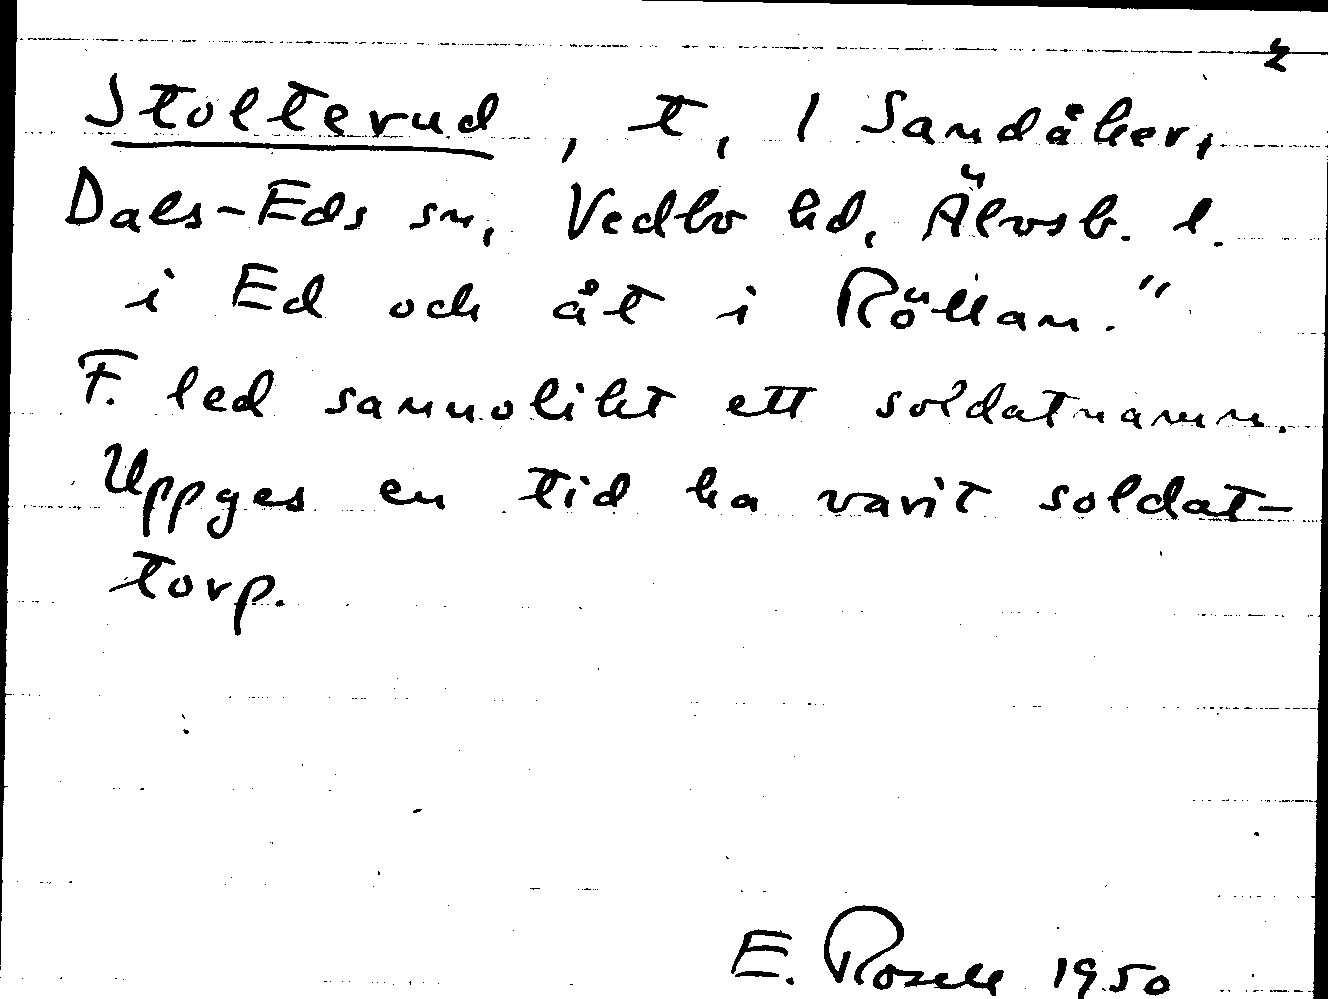 2
Stolterud, t, 1 Sandåker,
Dals-Eds sn, Vedbo hd, Älvsb. l.
i Ed och åt i Röllan."
F. led sannolikt ett soldatnamn.
Uppges en tid ha varit soldat-
torp.
E. Rosell 1950